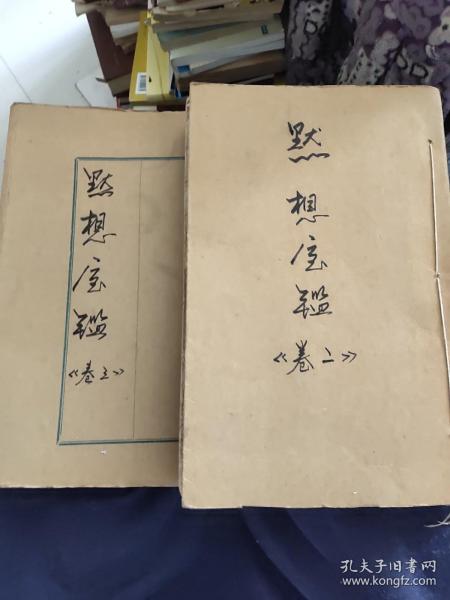 默想宝鑑
《卷三》
默想宝鑑
《卷二》
孔夫子旧书网
www.kongfz.com